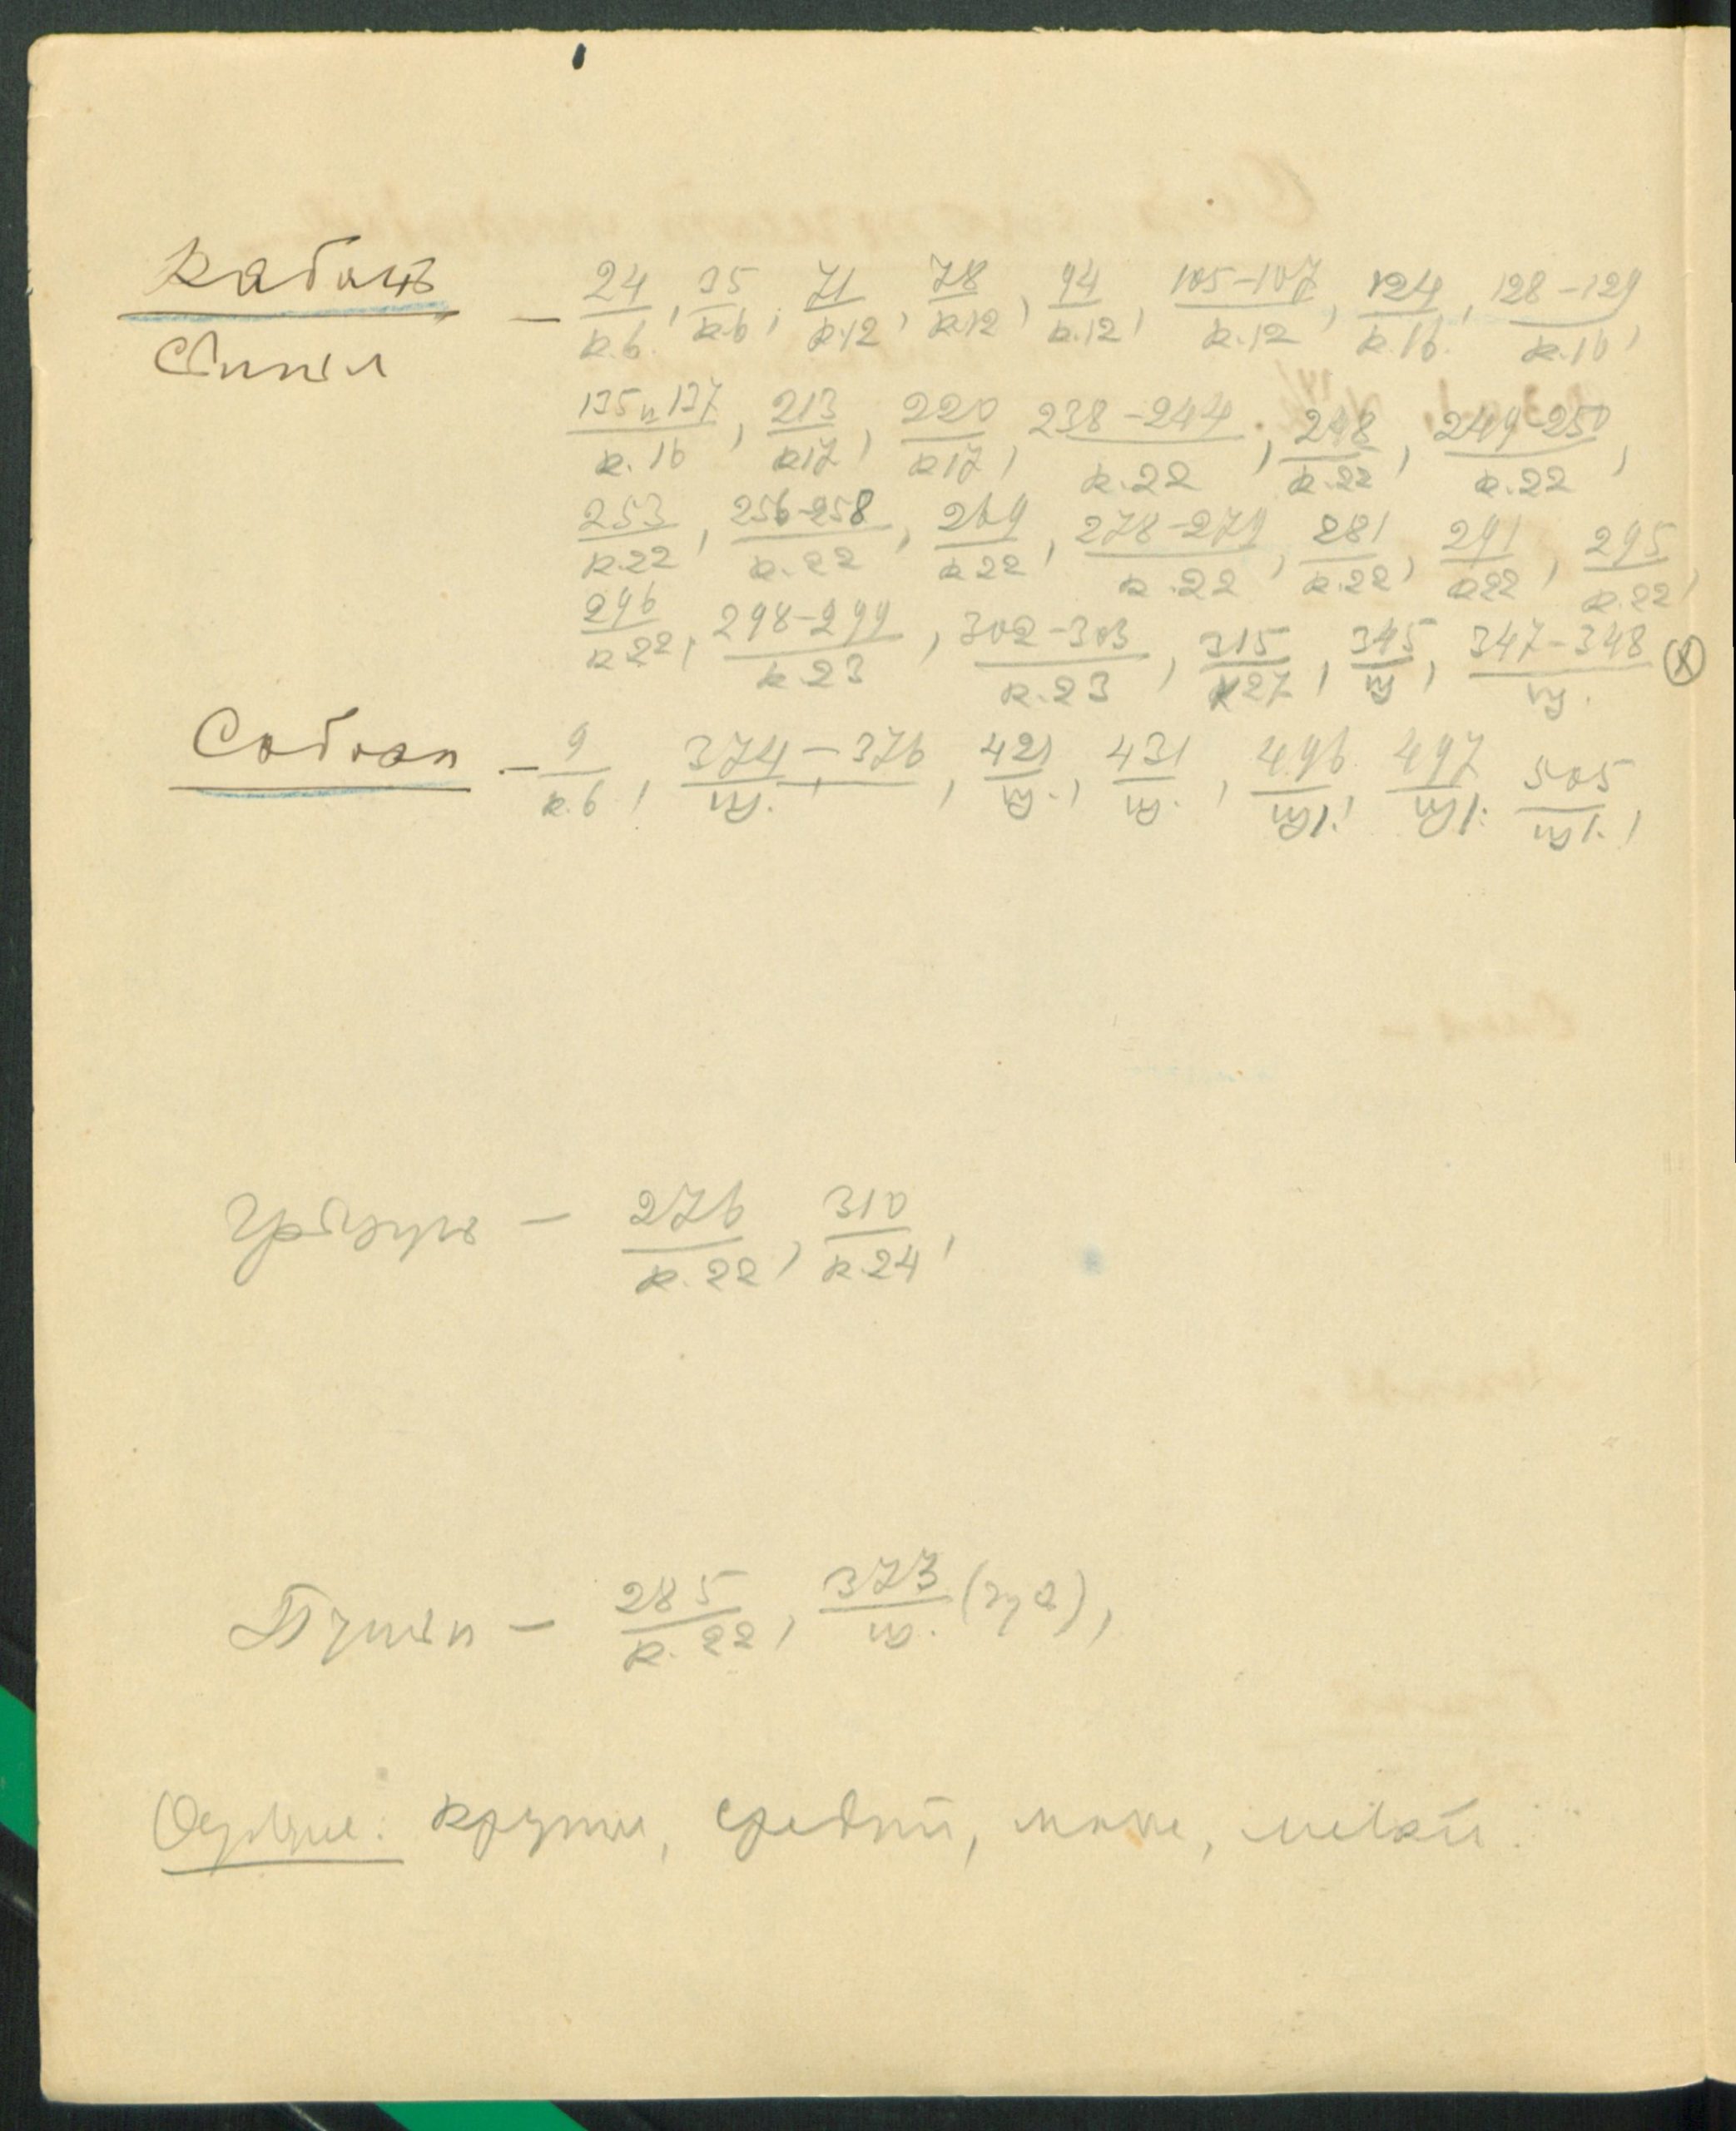 Кабань
Свинья
— 24/к.6., 35/к.6, 71/к.12, 78/к.12, 94/к.12, 105-107/к.12, 124/к.16., 128-129/к.16,
135 и 137/к.16, 213/к17, 220/к17, 238-244/к.22, 248/к.22, 249-250/к.22,
253/к.22, 256-258/к.22, 269/к22, 278-279/к.22, 281/к.22, 291/к22, 295/к.22,
296/к22, 298-299/к.23, 302-303/к.23, 315/к27, 345/щ, 347-348/щ.
Собака — 9/к.6, 374-376/щ., 421/щ., 431/щ., 496/щ1., 497/щ1., 505/щ1.,
Грызун — 276/к.22, 310/к.24,
Птица — 285/к.22, 373/щ. (зуб),
крупн, средний, мелкий.